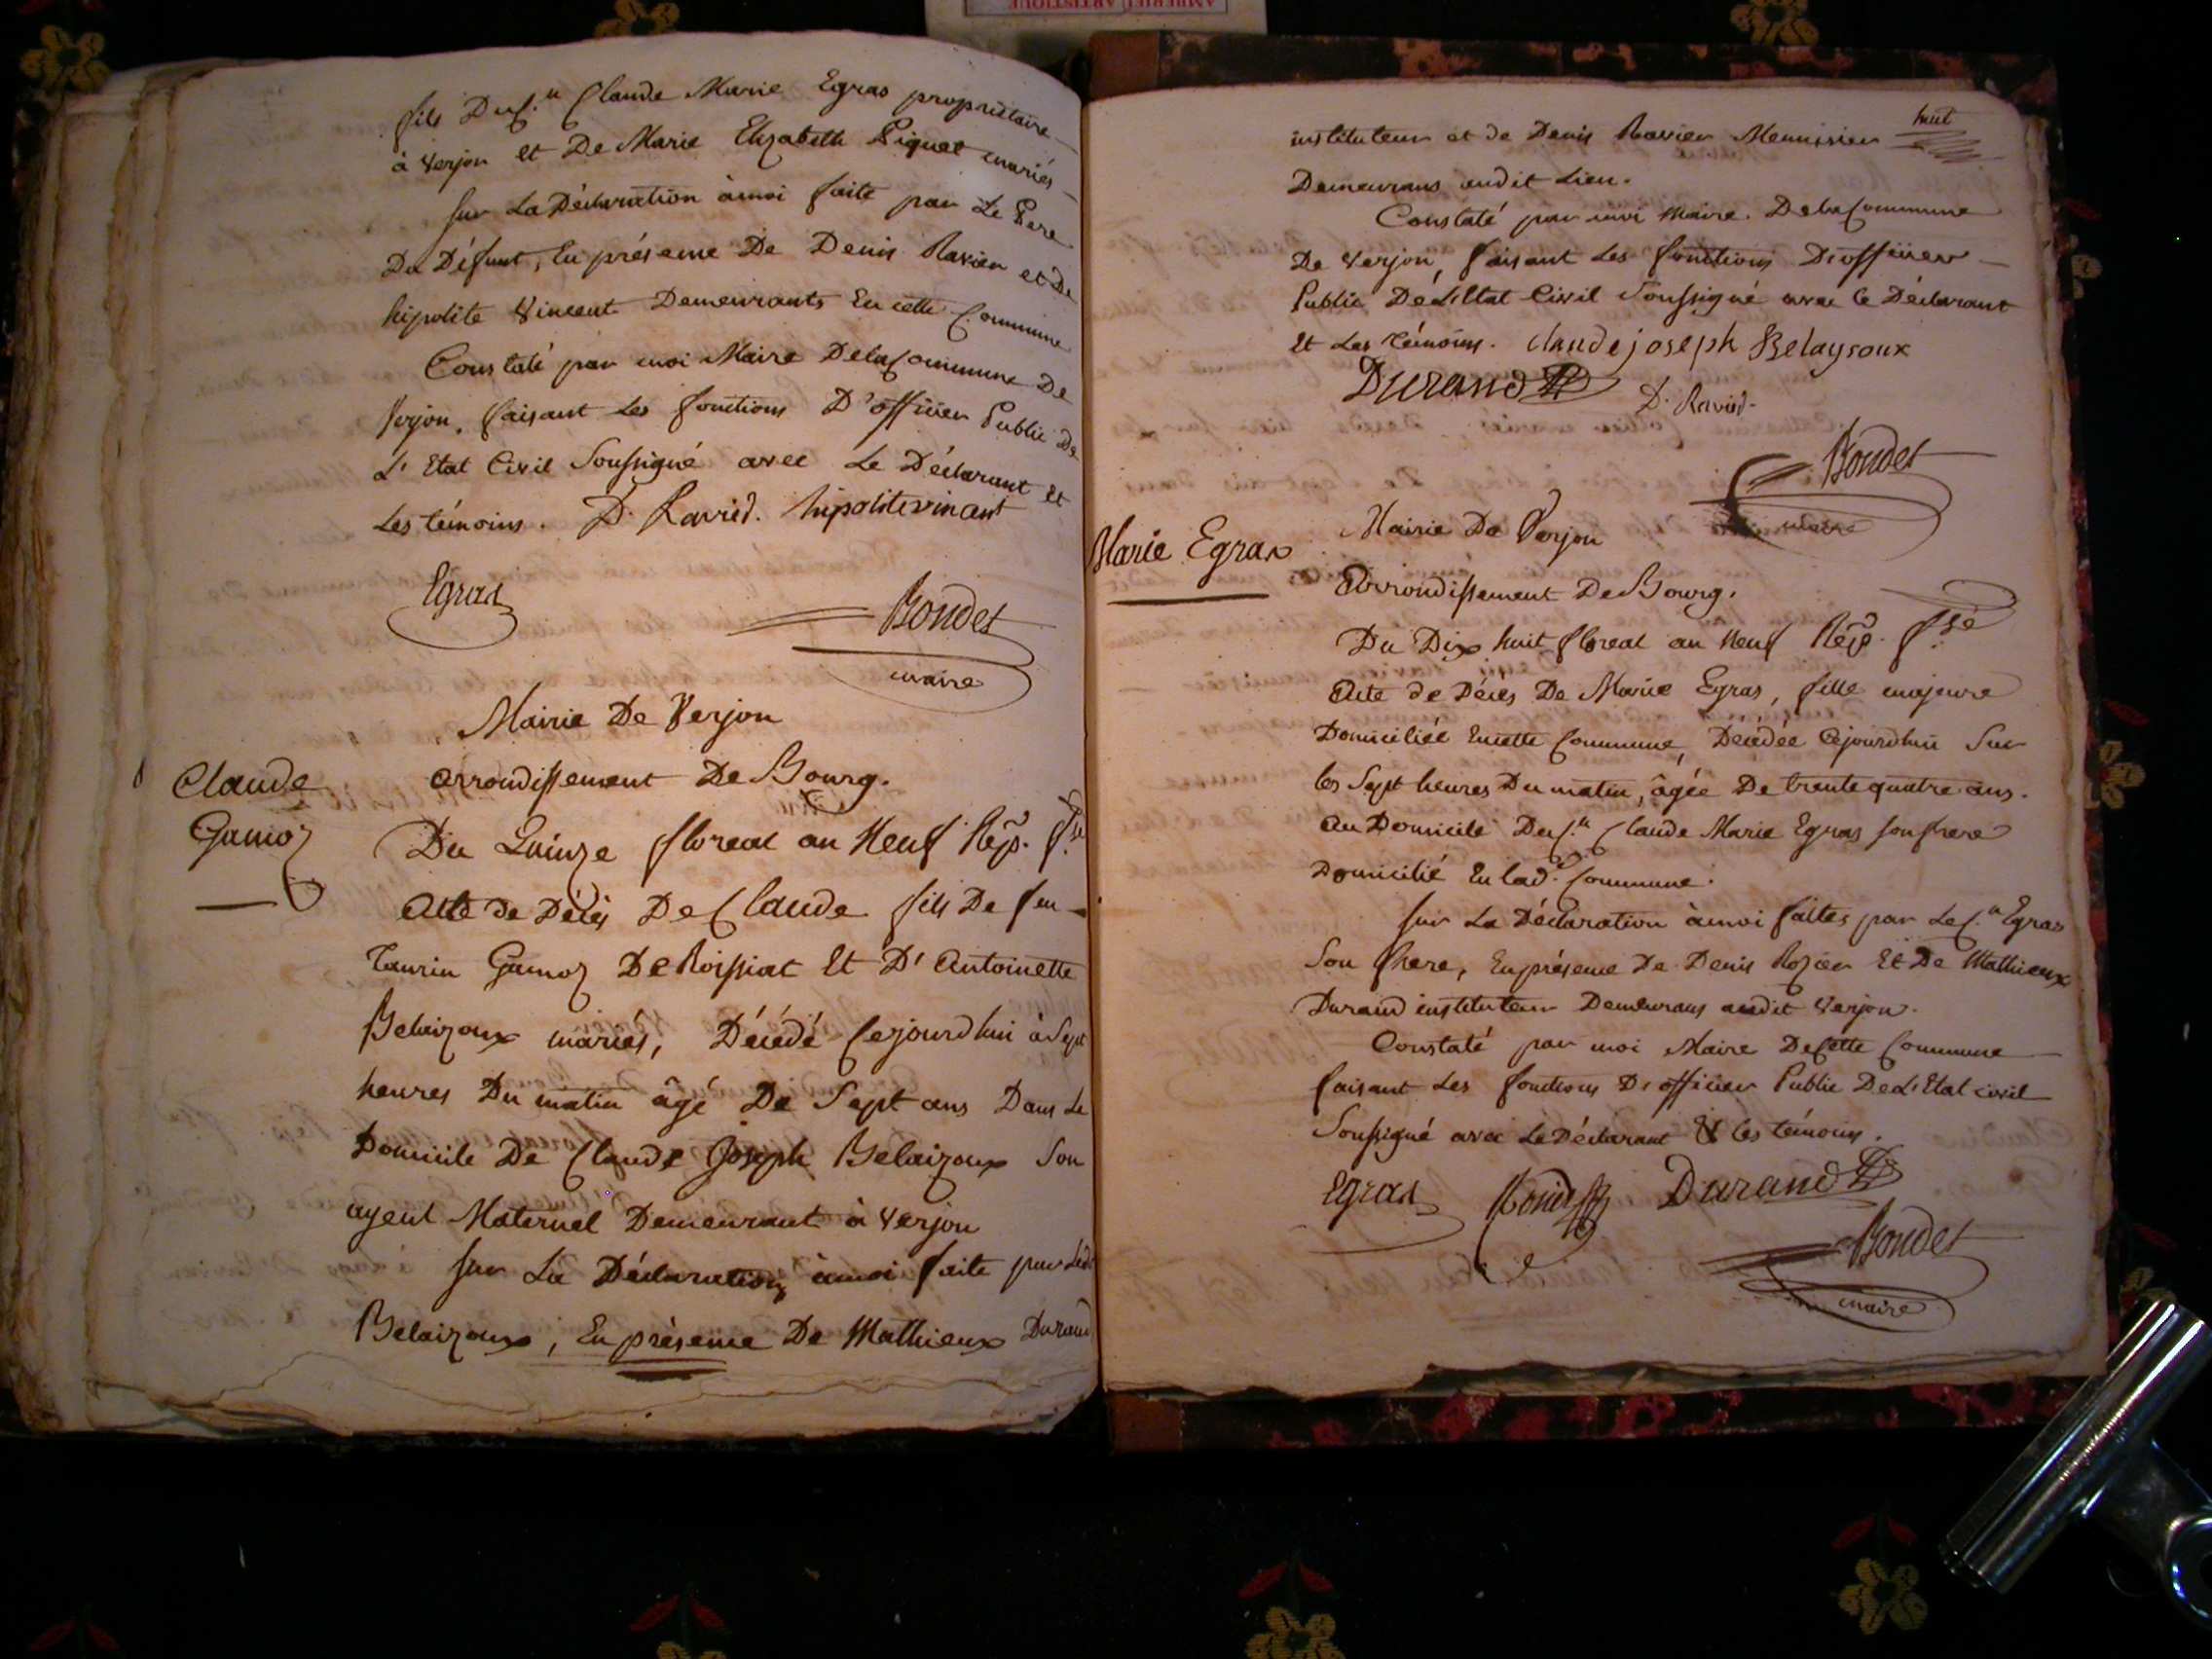 AMBERIEU ARTISTIQUE
fils Du C.en Claude Marie Egras propriétaire
à Verjon et De Marie Elizabeth Piquet mariés
sur La Déclaration à moi faite par Le Pere
Du Défunt, En présence De Denis Ravier et De
hipolite Vincent Demeurants En cette Commune
Constaté par moi Maire De la Commune De
Verjon, faisant Les fonctions D'officier Public De
L'Etat Civil Soussigné avec Le Déclarant Et
Les témoins. D. Ravied. hipolitevincent
Egras
Bondet
maire
Mairie De Verjon
arrondissement De Bourg.
Claude
Gamoz
Du Quinze floreal an Neuf Rép. f.se
Acte de Décès De Claude fils De feu
Taurin Gamoz De Roissiat Et D'Antoinette
Belaizoux mariés, Décédé Cejourd'hui à Sept
heures Du matin âgé De Sept ans Dans Le
Domicile De Claude Joseph Belaizoux Son
ayeul Maternel Demeurant à Verjon
Sur La Déclaration à moi faite par Led.
Belaizoux, En présence De Mathieux Durand
huit
instituteur et de Denis Ravier Menuisier
Demeurans audit Lieu.
Constaté par moi Maire De la Commune
De Verjon, faisant Les fonctions D'officier
Public De L'Etat Civil Soussigné avec le Déclarant
Et Les témoins. Claude joseph Belaysoux
Durand D. Ravied.
Bondet
maire
Marie Egras
Mairie De Verjon
Arrondissement De Bourg.
Du Dix huit floreal an Neuf Rép. f.se
Acte de Décès De Marie Egras, fille majeure
Domiciliée En cette Commune, Décédée Cejourdhui Sur
les Sept heures Du matin, âgée De trente quatre ans.
Au Domicile Du C.en Claude Marie Egras son frere
Domicilié En lad. Commune.
Sur La Déclaration à moi faites par Le C.en Egras
Son frere, En présence De Denis Rozier Et De Mathieux
Durand instituteur Demeurans audit Verjon.
Constaté par moi Maire De Cette Commune
faisant Les fonctions D'officier Public De L'Etat civil
Soussigné avec Le Déclarant & les témoins.
Egras Durand
Bondet
maire